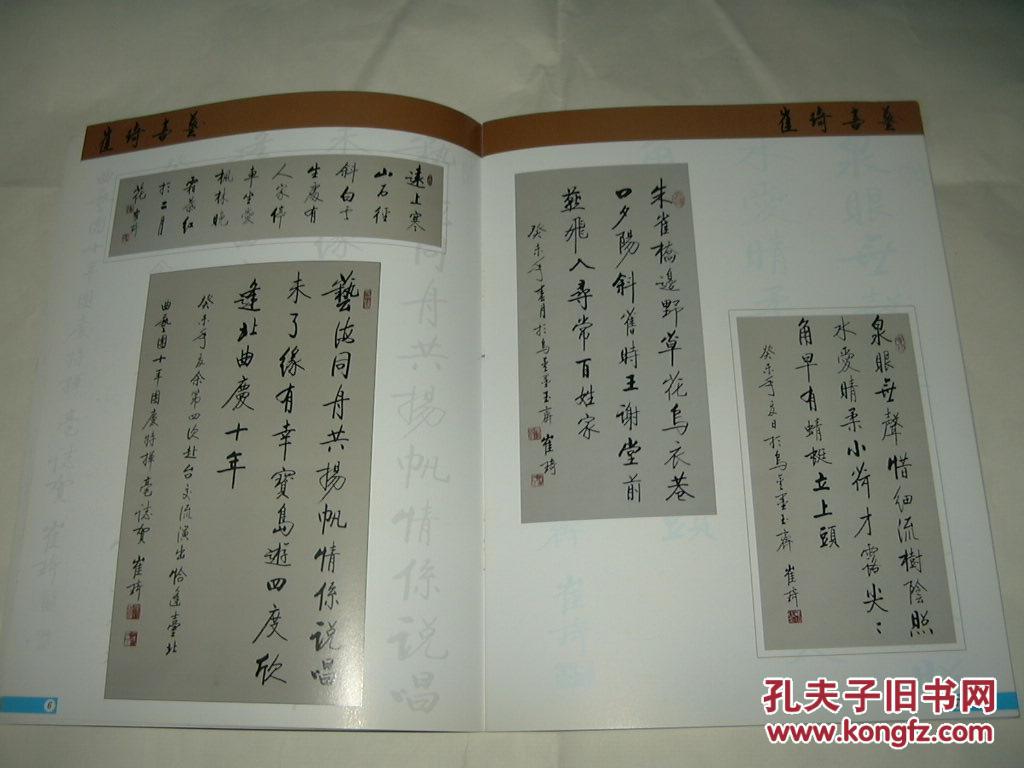 崔琦書藝
遠上寒
山石徑
斜白雲
生處有
人家停
車坐愛
楓林晚
霜葉紅
於二月
花 崔琦
藝海同舟共揚帆情係說唱
未了緣有幸寶島遊四度欣
逢北曲慶十年
癸未年夏余第四次赴台交流演出恰逢臺北
曲藝團十年團慶特揮毫誌賀 崔琦
6
崔琦書藝
朱雀橋邊野草花烏衣巷
口夕陽斜舊時王謝堂前
燕飛入尋常百姓家
癸未年春月於烏金墨玉齋 崔琦
泉眼無聲惜細流樹陰照
水愛晴柔小荷才露尖〻
角早有蜻蜓立上頭
癸未年夏日於烏金墨玉齋 崔琦
孔夫子旧书网
www.kongfz.com